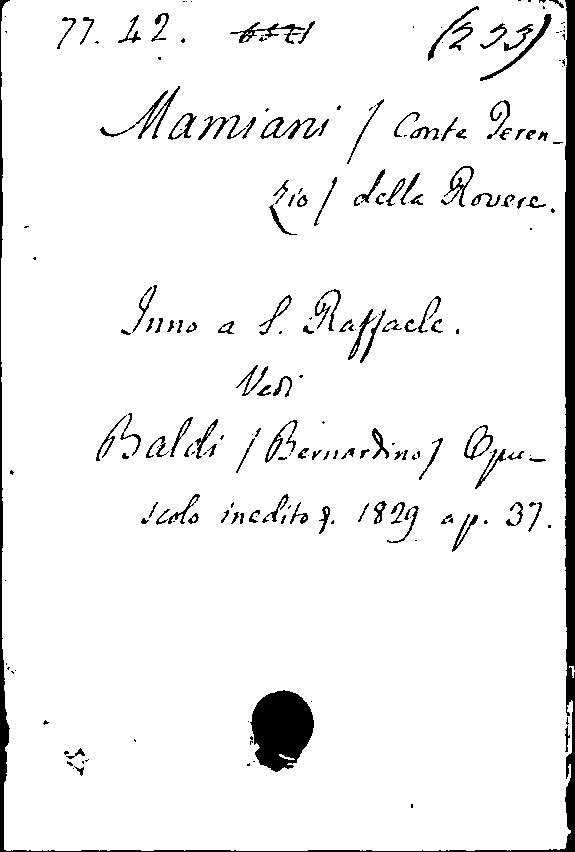 77. 42. (233)
Mamiani / Conte Teren-
zio / della Rovere.
Inno a S. Raffaele.
Vedi
Baldi / Bernardino / Opu-
scolo inedito &. 1829 a p. 37.